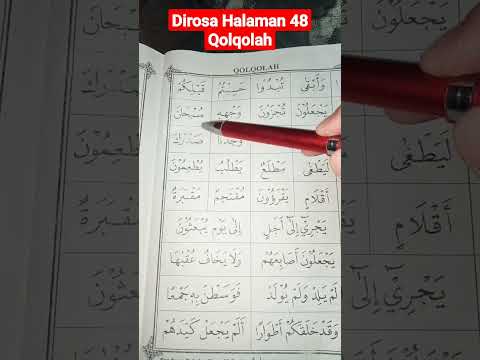 Dirosa Halaman 48
Qolqolah
QOLQOLAH
وَأَبْقَى تُبْدُوا حَسِبْتُمْ قَبْلَكُمْ
يَجْعَلُوْنَ تُجْزَوْنَ وَجْهِهِ سُبْحَانَ
لَيَطْغَى وَجَدْنَا صَدْرَكَ مُدْرَكَ
لَيَطْغَى مَطْلَعُ يَطْلُبُ يُطْعِمُوْنَ يُطْعِمُوْنَ
أَقْلَامٍ أَقْلَامٍ يَقْرَؤُوْنَ مُقْتَحِمٌ مَقْبَرَةٌ مَقْبَرَةٌ
يَجْرِيْ إِلَىٰ أَجَلٍ إِلَى يَوْمِ يُبْعَثُوْنَ
يَجْعَلُوْنَ أَصَابِعَهُمْ وَلَا يَخَافُ عُقْبٰهَا
لَمْ يَلِدْ وَلَمْ يُوْلَدْ فَوَسَطْنَ بِهِ جَمْعًا
يَجْرِيْ إِلَىٰ
وَقَدْ خَلَقَكُمْ أَطْوَارًا أَلَمْ يَجْعَلْ كَيْدَهُمْ